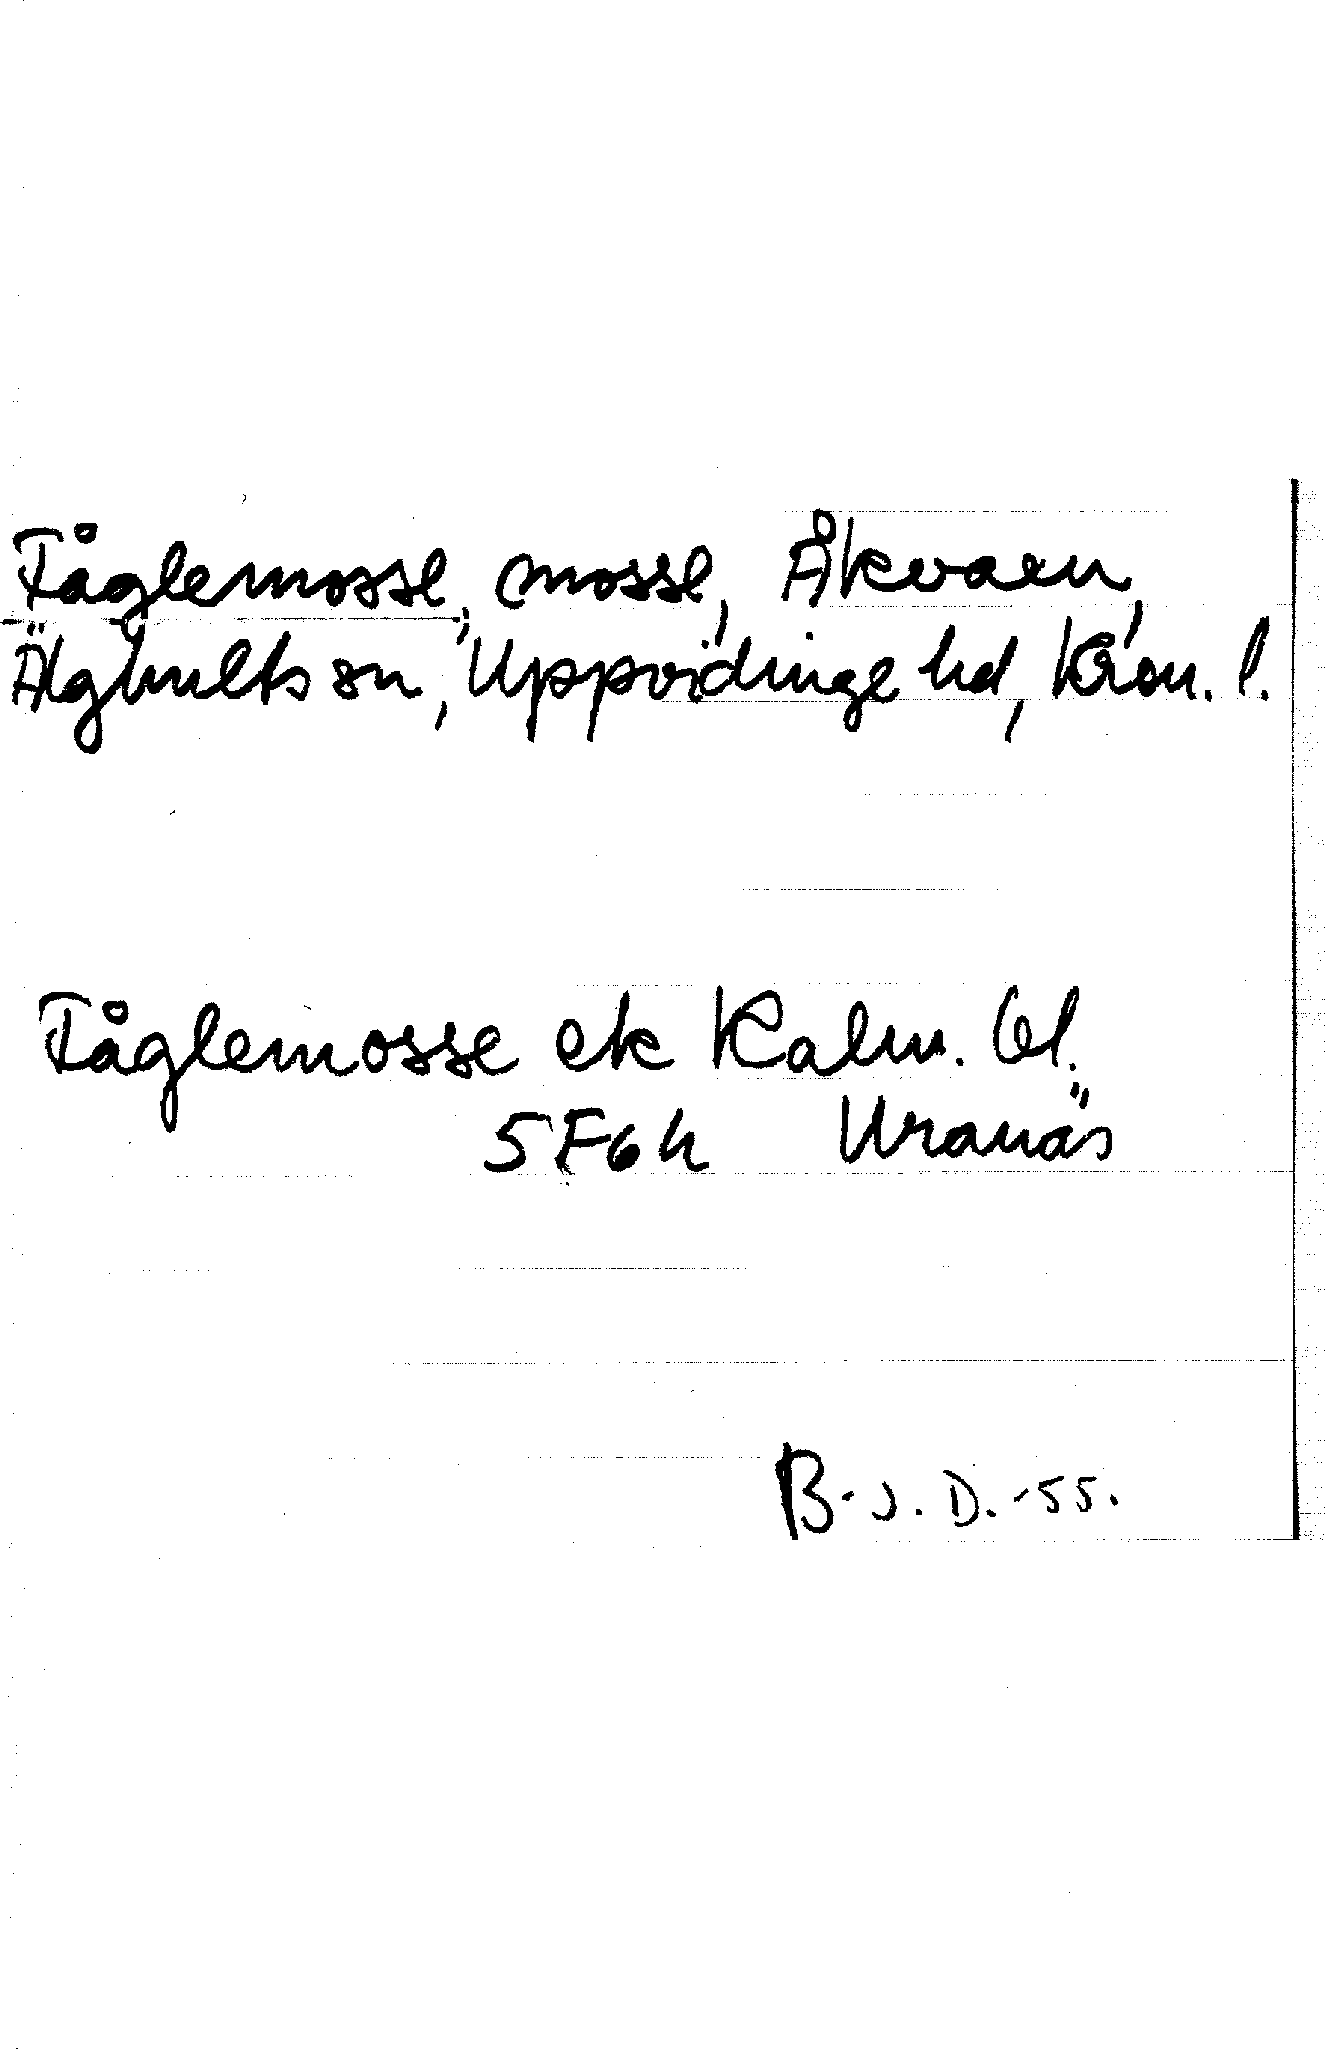 Tåglemosse, mosse, Åkvarn,
Älghults sn, Uppvidinge hd, Kron. l.
Tåglemosse ek Kalm. bl.
5F6h Uranäs
B-J.D.-55.